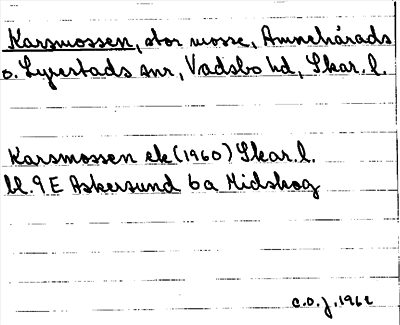 Karsmossen, stor mosse, Amnehärads
o. Lyrestads snr, Vadsbo hd, Skar. l.
Karsmossen ek (1960) Skar. l.
bl. 9 E Askersund 6 a Midskog
C.O.J. 1962